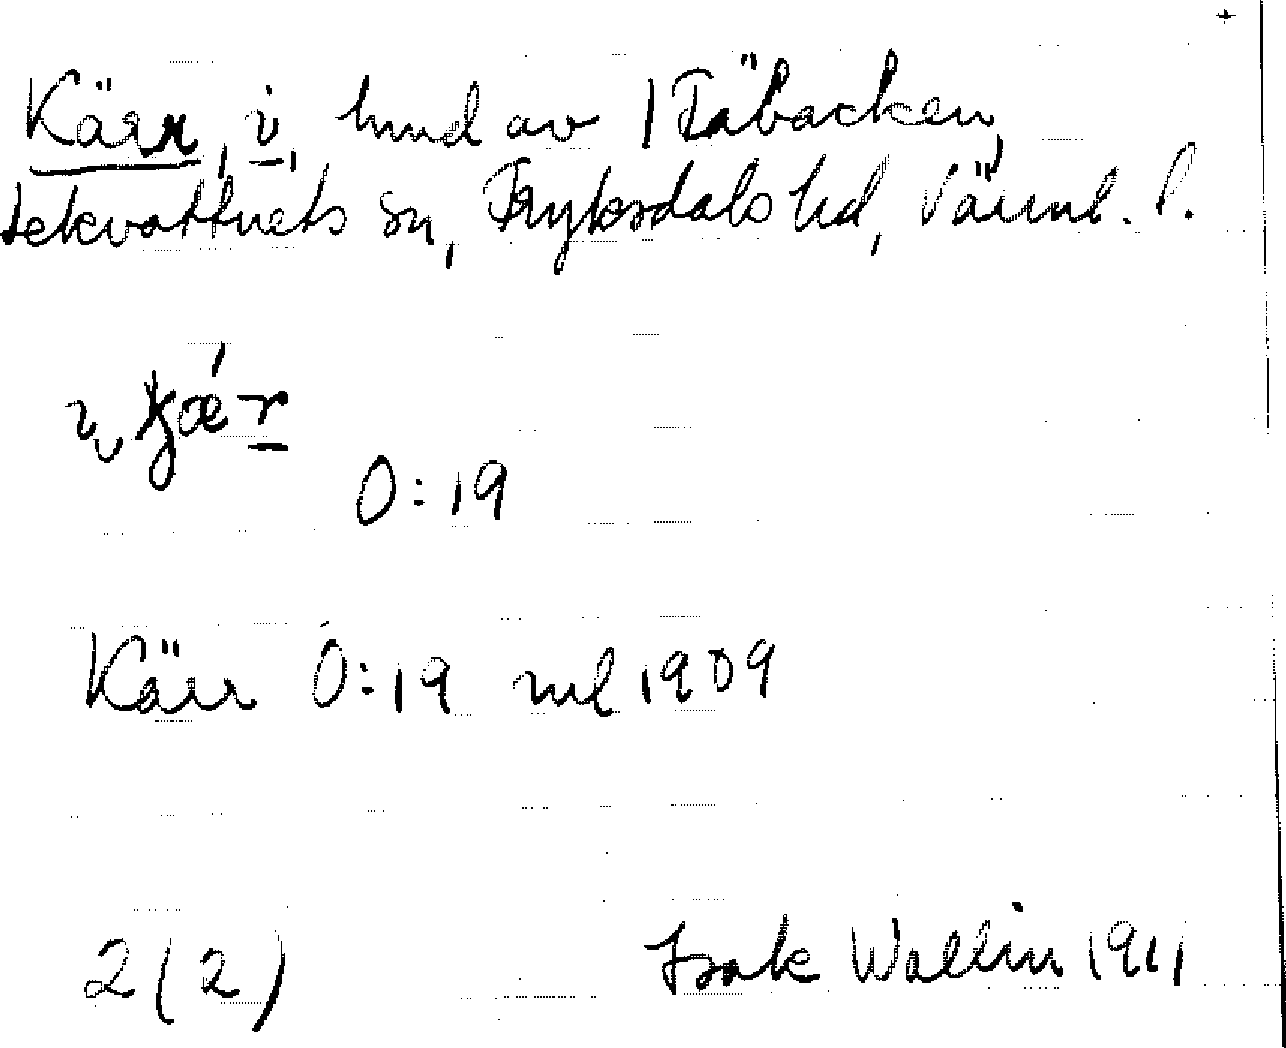 Kärr, i, hmd av 1 Fäbacken,
Lekvattnets sn, Fryksdals hd, Värml. l.
O:19
Kärr O:19 ml 1909
2(2) Isak Wallin 1911